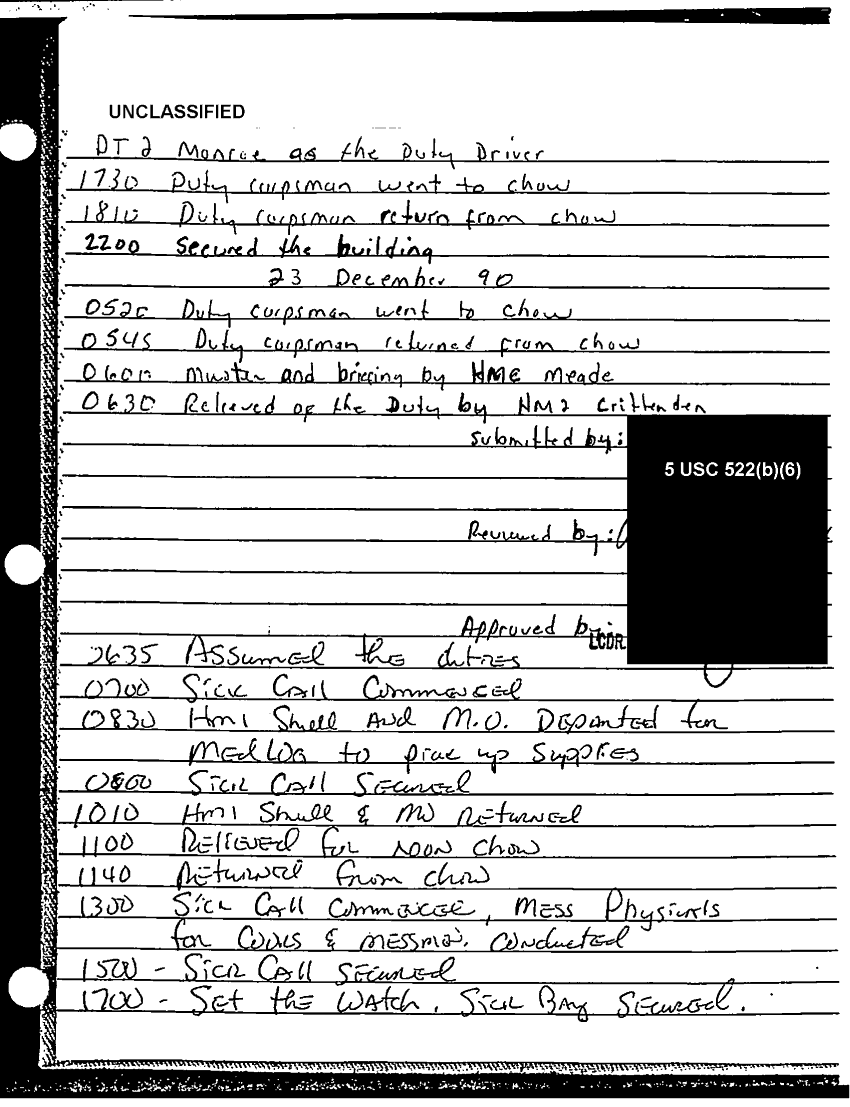 UNCLASSIFIED
DT2 Monroe as the Duty Driver
1730 Duty corpsman went to chow
1810 Duty corpsman return from chow
2200 Secured the building
23 December 90
0520 Duty corpsman went to chow
0545 Duty corpsman returned from chow
0600 Muster and briefing by HMC Meade
0630 Relieved of the Duty by HM2 Crittenden
submitted by:
5 USC 522(b)(6)
Reviewed by:
Approved by:
LCDR
0635 Assumed the duties
0700 Sick Call Commenced
0830 Hm1 Shull and M.O. Departed for
MedLog to pick up Supplies
Sick Call Secured
1010 Hm1 Shull & MO Returned
1100 Relieved for noon chow
1140 Returned from chow
1300 Sick Call Commenced, Mess Physicals
for Cooks & messmen. conducted
1500 - Sick Call Secured
1700 - Set the Watch. Sick Bay Secured.